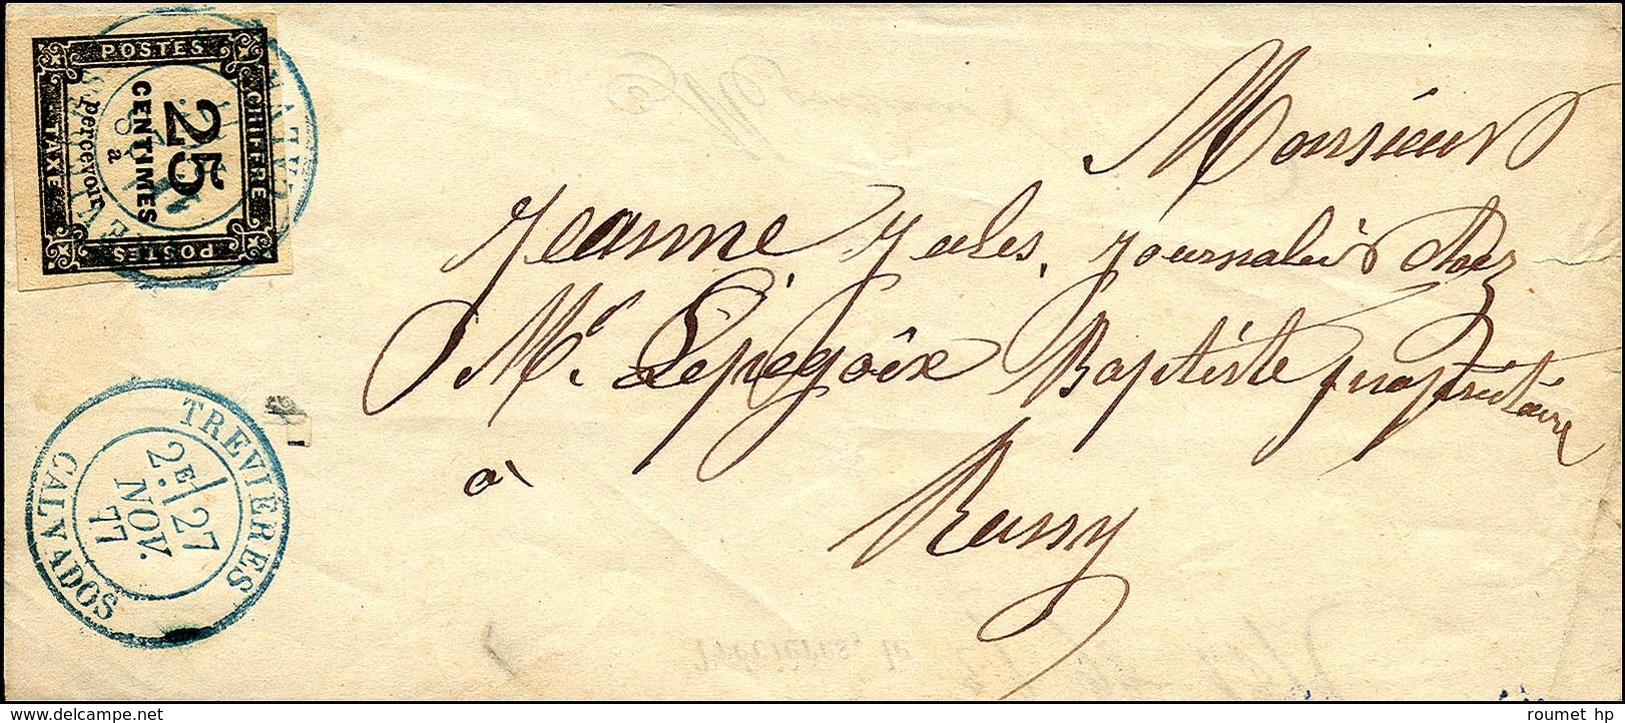 POSTES
CHIFFRE
TAXE
POSTES
25
CENTIMES
à
percevoir
Monsieur
Jeanne Jules, Journalier chez
Mr. Lepegoix Baptiste propriétaire
à
Russy
TREVIÈRES
2E 27
NOV.
77
CALVADOS
delcampe.net
roumet hp